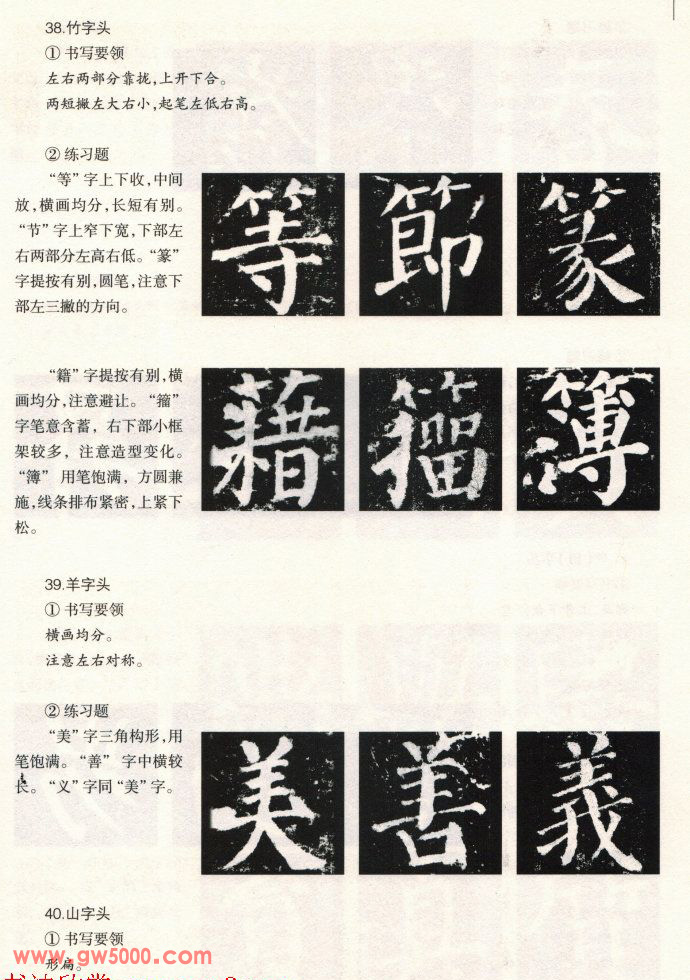 38.竹字头
① 书写要领
左右两部分靠拢，上开下合。
两短撇左大右小，起笔左低右高。
② 练习题
“等”字上下收，中间
放，横画均分，长短有别。
“节”字上窄下宽，下部左
右两部分左高右低。“篆”
字提按有别，圆笔，注意下
部左三撇的方向。
等 節 篆
“籍”字提按有别，横
画均分，注意避让。“籀”
字笔意含蓄，右下部小框
架较多，注意造型变化。
“簿”用笔饱满，方圆兼
施，线条排布紧密，上紧下
松。
籍 籀 簿
39.羊字头
① 书写要领
横画均分。
注意左右对称。
② 练习题
“美”字三角构形，用
笔饱满。“善”字中横较
长。“义”字同“美”字。
美 善 義
40.山字头
① 书写要领
形扁。
www.gw5000.com